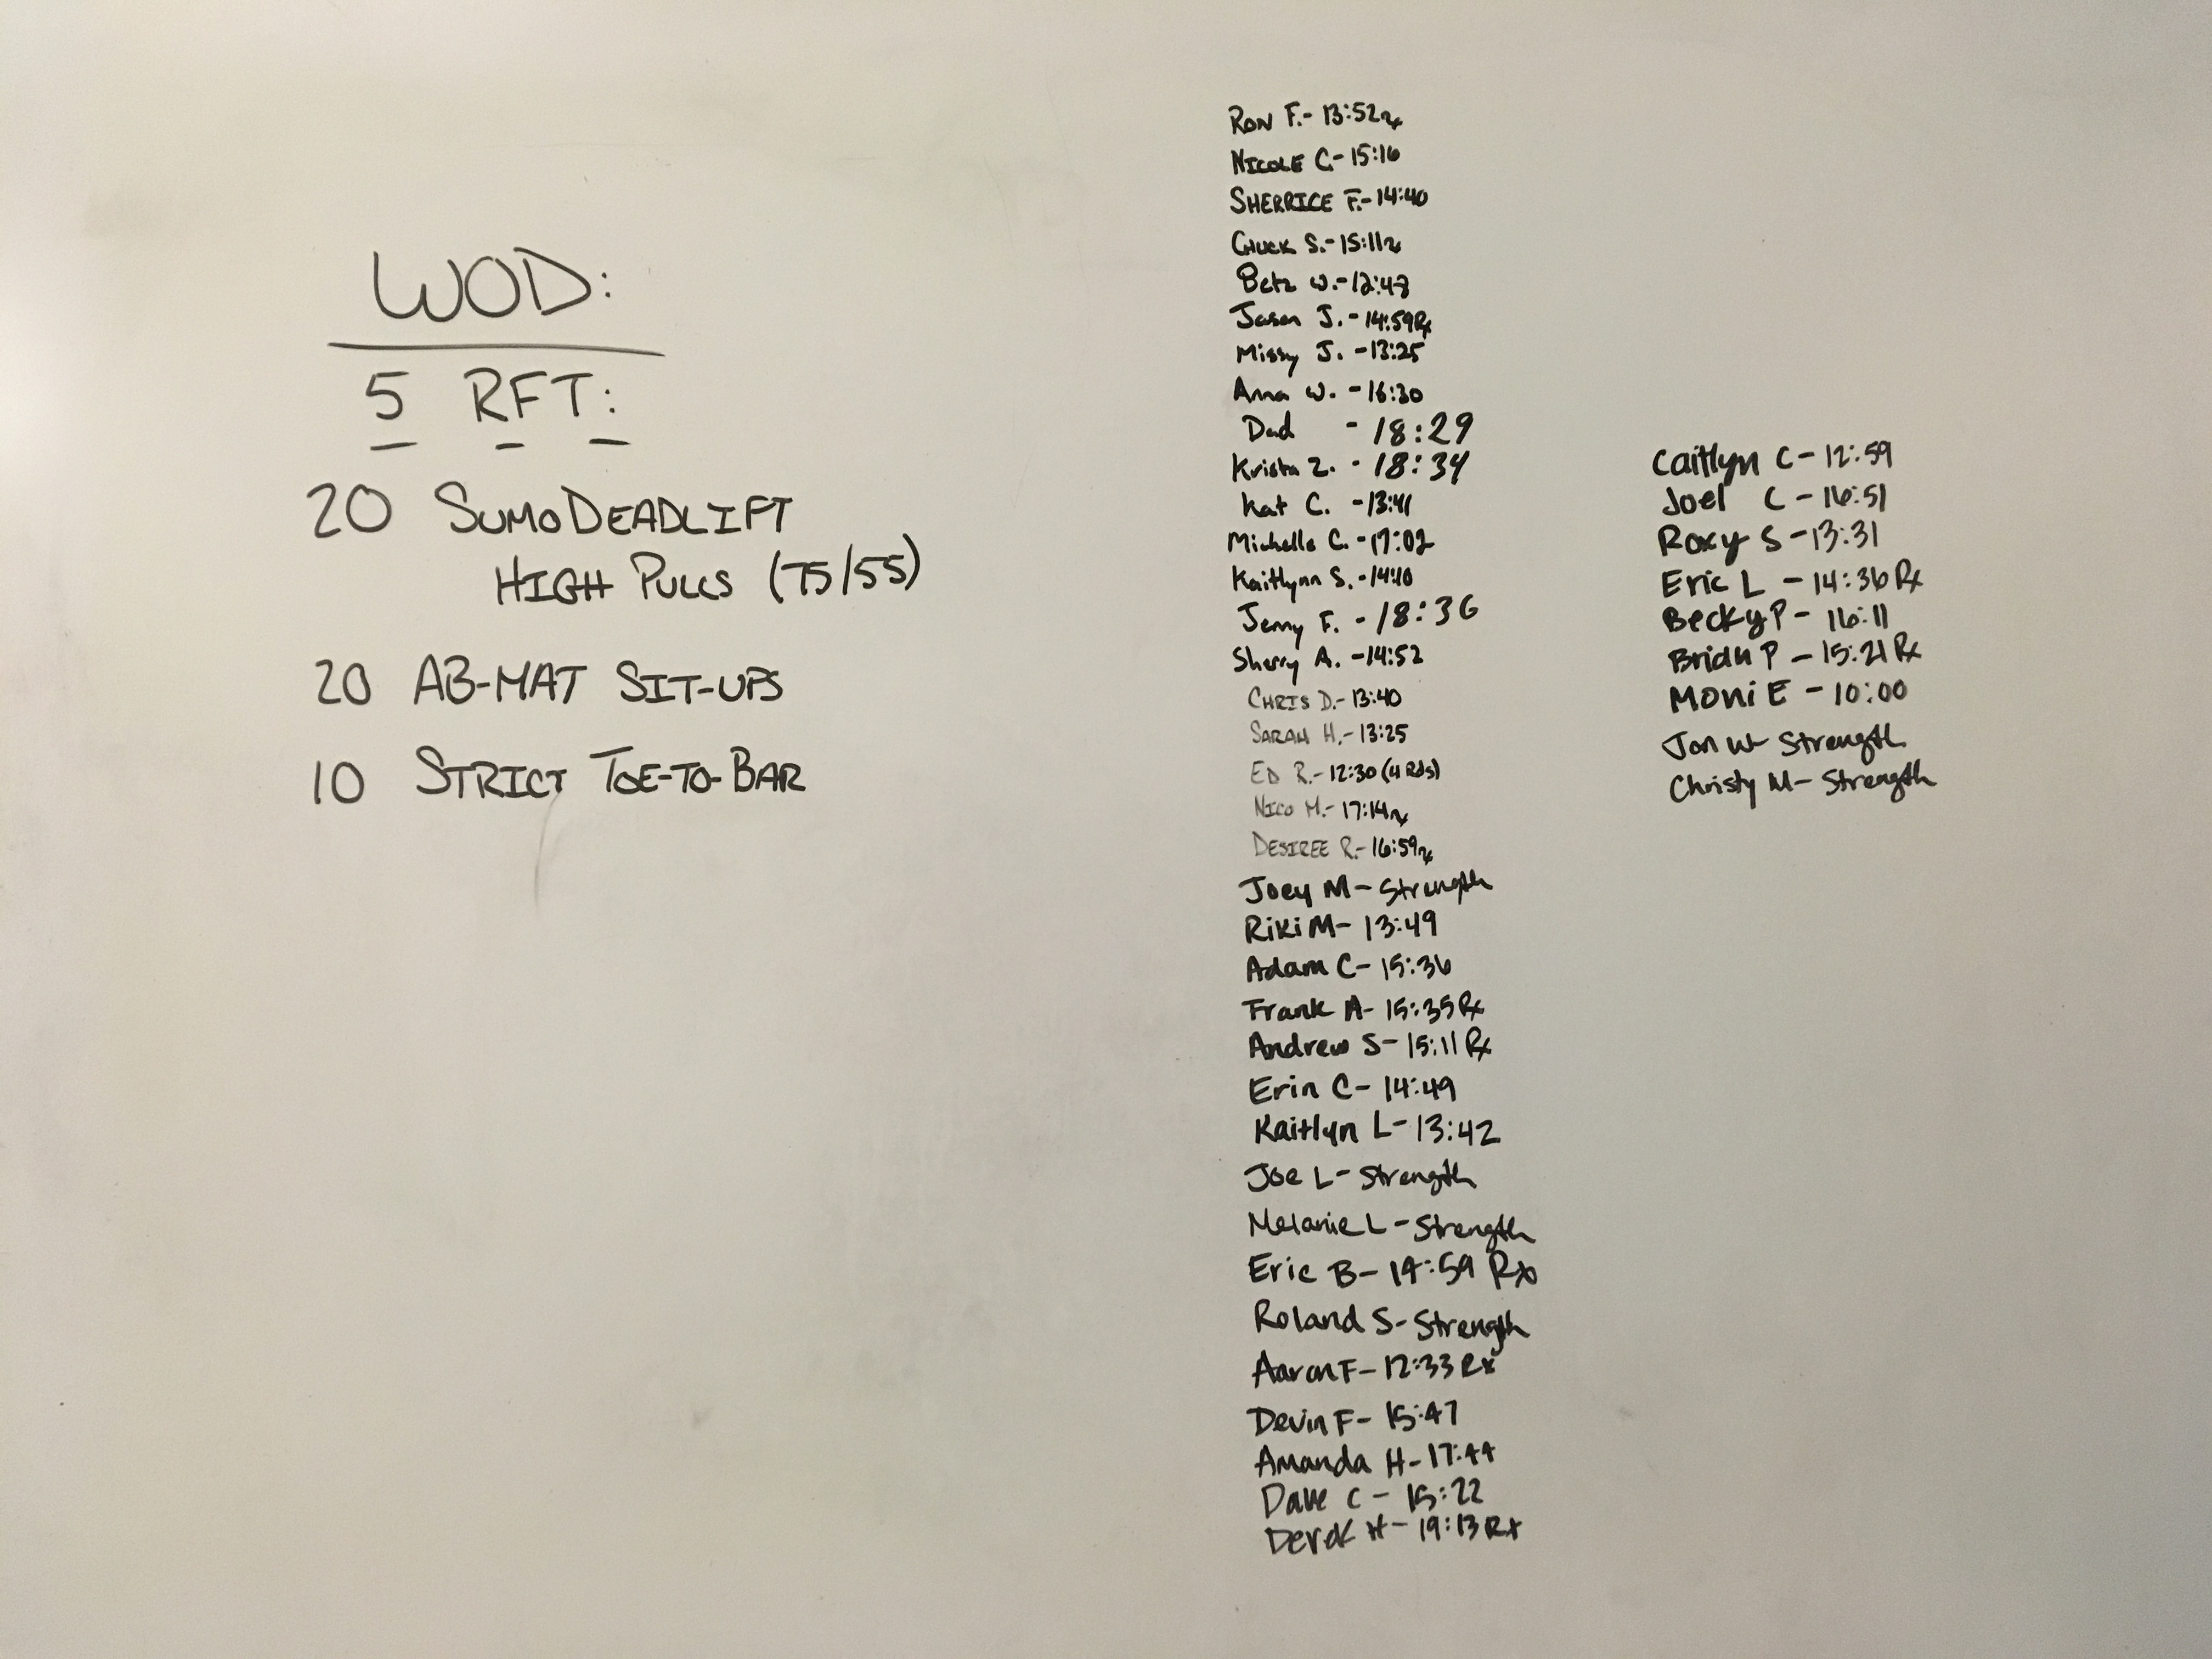 WOD:
5 RFT:
20 SUMO DEADLIFT
HIGH PULLS (75/55)
20 AB-MAT SIT-UPS
10 STRICT TOE-TO-BAR
RON F.- 13:52 Rx
NICOLE C.- 15:16
SHERRICE F.- 14:40
CHUCK S.- 15:11 Rx
Betz W.- 12:48
Jason J. - 14:59 Rx
Missy J. - 13:25
Anna W. - 16:30
Dad - 18:29
Krista Z. - 18:34
Kat C. - 13:41
Michelle C. - 17:02
Kaitlynn S. - 14:10
Jenny F. - 18:36
Sherry A. - 14:52
CHRIS D.- 13:40
SARAH H.- 13:25
ED R.- 12:30 (4 Rds)
NICO M.- 17:14 Rx
DESIREE R.- 16:59 Rx
Joey M - Strength
Riki M - 13:49
Adam C - 15:36
Frank A - 15:35 Rx
Andrew S - 15:11 Rx
Erin C - 14:49
Kaitlyn L - 13:42
Joe L - Strength
Melanie L - Strength
Eric B - 14:59 Rx
Roland S - Strength
Aaron F - 12:33 Rx
Devin F - 15:47
Amanda H - 17:44
Dave C - 15:22
Derek H - 19:13 Rx
Caitlyn C - 12:59
Joel C - 16:51
Roxy S - 13:31
Eric L - 14:36 Rx
Becky P - 16:11
Brian P - 15:21 Rx
Moni E - 10:00
Jon W - Strength
Christy M - Strength